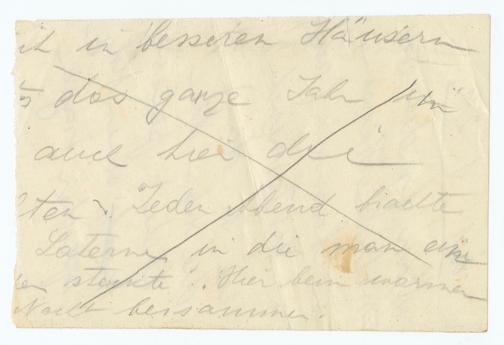 ich in besseren Häusern
s das ganze Jahr ein
auch hier die
lten. Jeden Abend brachte
Laterne in die man ein
steckte. Hier beim warmen
beisammen.